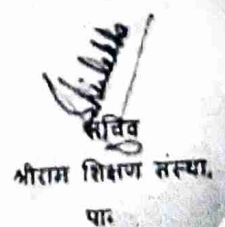 सचिव
श्रीराम शिक्षण संस्था,